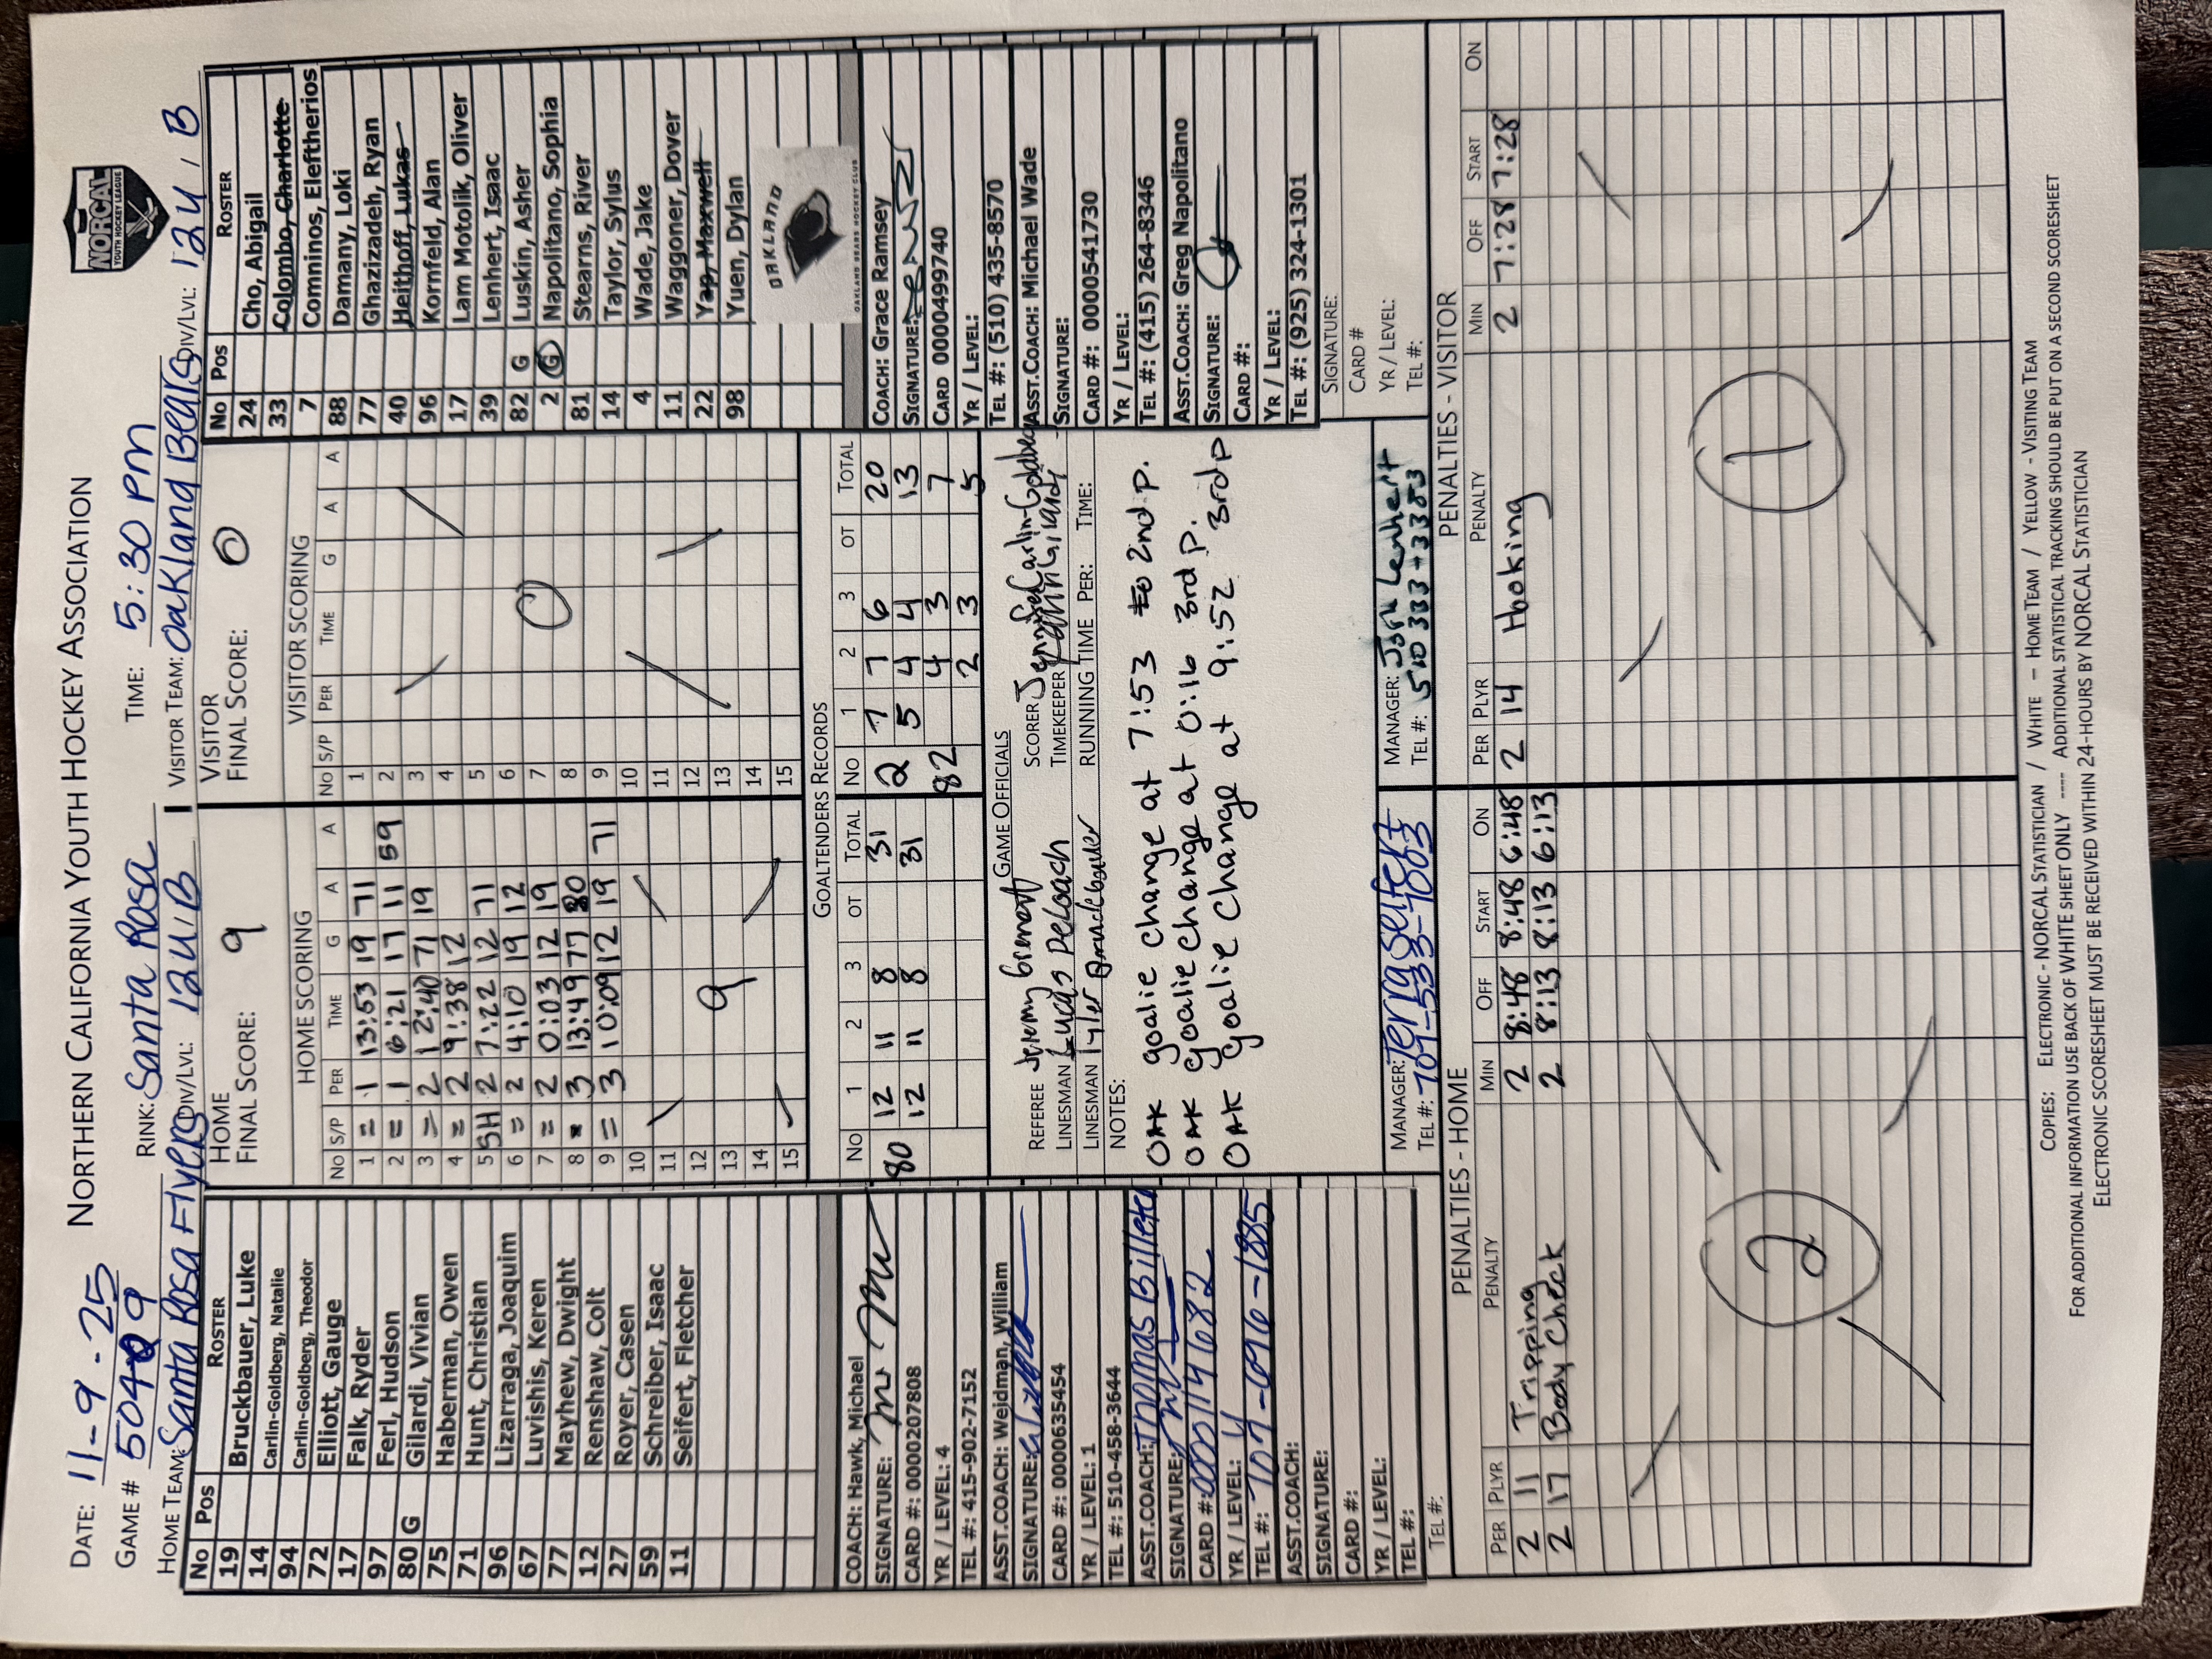 NORTHERN CALIFORNIA YOUTH HOCKEY ASSOCIATION
NORCAL
YOUTH HOCKEY LEAGUE
DATE: 11-9-25
GAME # 50409 RINK: Santa Rosa TIME: 5:30 PM
HOME TEAM: Santa Rosa Flyers DIV/LVL: 12U B VISITOR TEAM: Oakland Bears DIV/LVL: 12U B
No Pos ROSTER
19 Bruckbauer, Luke
14 Carlin-Goldberg, Natalie
94 Carlin-Goldberg, Theodor
72 Elliott, Gauge
17 Falk, Ryder
97 Ferl, Hudson
80 G Gilardi, Vivian
75 Haberman, Owen
71 Hunt, Christian
96 Lizarraga, Joaquim
67 Luvishis, Keren
77 Mayhew, Dwight
12 Renshaw, Colt
27 Royer, Casen
59 Schreiber, Isaac
11 Seifert, Fletcher
COACH: Hawk, Michael
SIGNATURE:
CARD #: 0000207808
YR / LEVEL: 4
TEL #: 415-902-7152
ASST.COACH: Weidman, William
SIGNATURE:
CARD #: 0000635454
YR / LEVEL: 1
TEL #: 510-458-3644
ASST.COACH: Thomas Billeter
SIGNATURE:
CARD #: 0000114682
YR / LEVEL: 4
TEL #: 707-696-1885
ASST.COACH:
SIGNATURE:
CARD #:
YR / LEVEL:
TEL #:
TEL #:
HOME
FINAL SCORE: 9
HOME SCORING
No S/P PER TIME G A A
1 = 1 13:53 19 71
2 = 1 6:21 17 11 59
3 = 2 12:40 71 19
4 = 2 9:38 12
5 SH 2 7:22 12 71
6 = 2 4:10 19 12
7 = 2 0:03 12 19
8 = 3 13:49 77 80
9 = 3 10:09 12 19 71
10
11
12
13 9
14
15
VISITOR
FINAL SCORE: 0
VISITOR SCORING
No S/P PER TIME G A A
1
2
3
4
5
6
7 0
8
9
10
11
12
13
14
15
GOALTENDERS RECORDS
No 1 2 3 OT TOTAL No 1 2 3 OT TOTAL
80 12 11 8 31 2 7 7 6 20
12 11 8 31 5 4 4 13
82 4 3 7
2 3 5
GAME OFFICIALS
REFEREE Jeremy SCORER Jennifer Carlin-Goldberg
LINESMAN Lucas DeLoach TIMEKEEPER Gilardi
LINESMAN Tyler RUNNING TIME PER: TIME:
NOTES:
OAK goalie change at 7:53 to 2nd P.
OAK goalie change at 0:16 3rd P.
OAK goalie change at 9:52 3rd P
MANAGER: Terra Seifert MANAGER: Josh Lenhert
TEL #: 707-533-9003 TEL #: 510 333 +3383
No Pos ROSTER
24 Cho, Abigail
33 Colombo, Charlotte
7 Comninos, Eleftherios
88 Damany, Loki
77 Ghazizadeh, Ryan
40 Helthoff, Lukas
96 Kornfeld, Alan
17 Lam Motolik, Oliver
39 Lenhert, Isaac
82 G Luskin, Asher
2 G Napolitano, Sophia
81 Stearns, River
14 Taylor, Sylus
4 Wade, Jake
11 Waggoner, Dover
22 Yap, Maxwell
98 Yuen, Dylan
OAKLAND
OAKLAND BEARS HOCKEY CLUB
COACH: Grace Ramsey
SIGNATURE:
CARD 0000499740
YR / LEVEL:
TEL #: (510) 435-8570
ASST.COACH: Michael Wade
SIGNATURE:
CARD #: 0000541730
YR / LEVEL:
TEL #: (415) 264-8346
ASST.COACH: Greg Napolitano
SIGNATURE:
CARD #:
YR / LEVEL:
TEL #: (925) 324-1301
SIGNATURE:
CARD #
YR / LEVEL:
TEL #:
PENALTIES - HOME
PER PLYR PENALTY MIN OFF START ON
2 11 Tripping 2 8:48 8:48 6:48
2 17 Body Check 2 8:13 8:13 6:13
2
PENALTIES - VISITOR
PER PLYR PENALTY MIN OFF START ON
2 14 Hooking 2 7:28 7:28
1
COPIES: ELECTRONIC - NORCAL STATISTICIAN / WHITE - HOME TEAM / YELLOW - VISITING TEAM
FOR ADDITIONAL INFORMATION USE BACK OF WHITE SHEET ONLY ---- ADDITIONAL STATISTICAL TRACKING SHOULD BE PUT ON A SECOND SCORESHEET
ELECTRONIC SCORESHEET MUST BE RECEIVED WITHIN 24-HOURS BY NORCAL STATISTICIAN